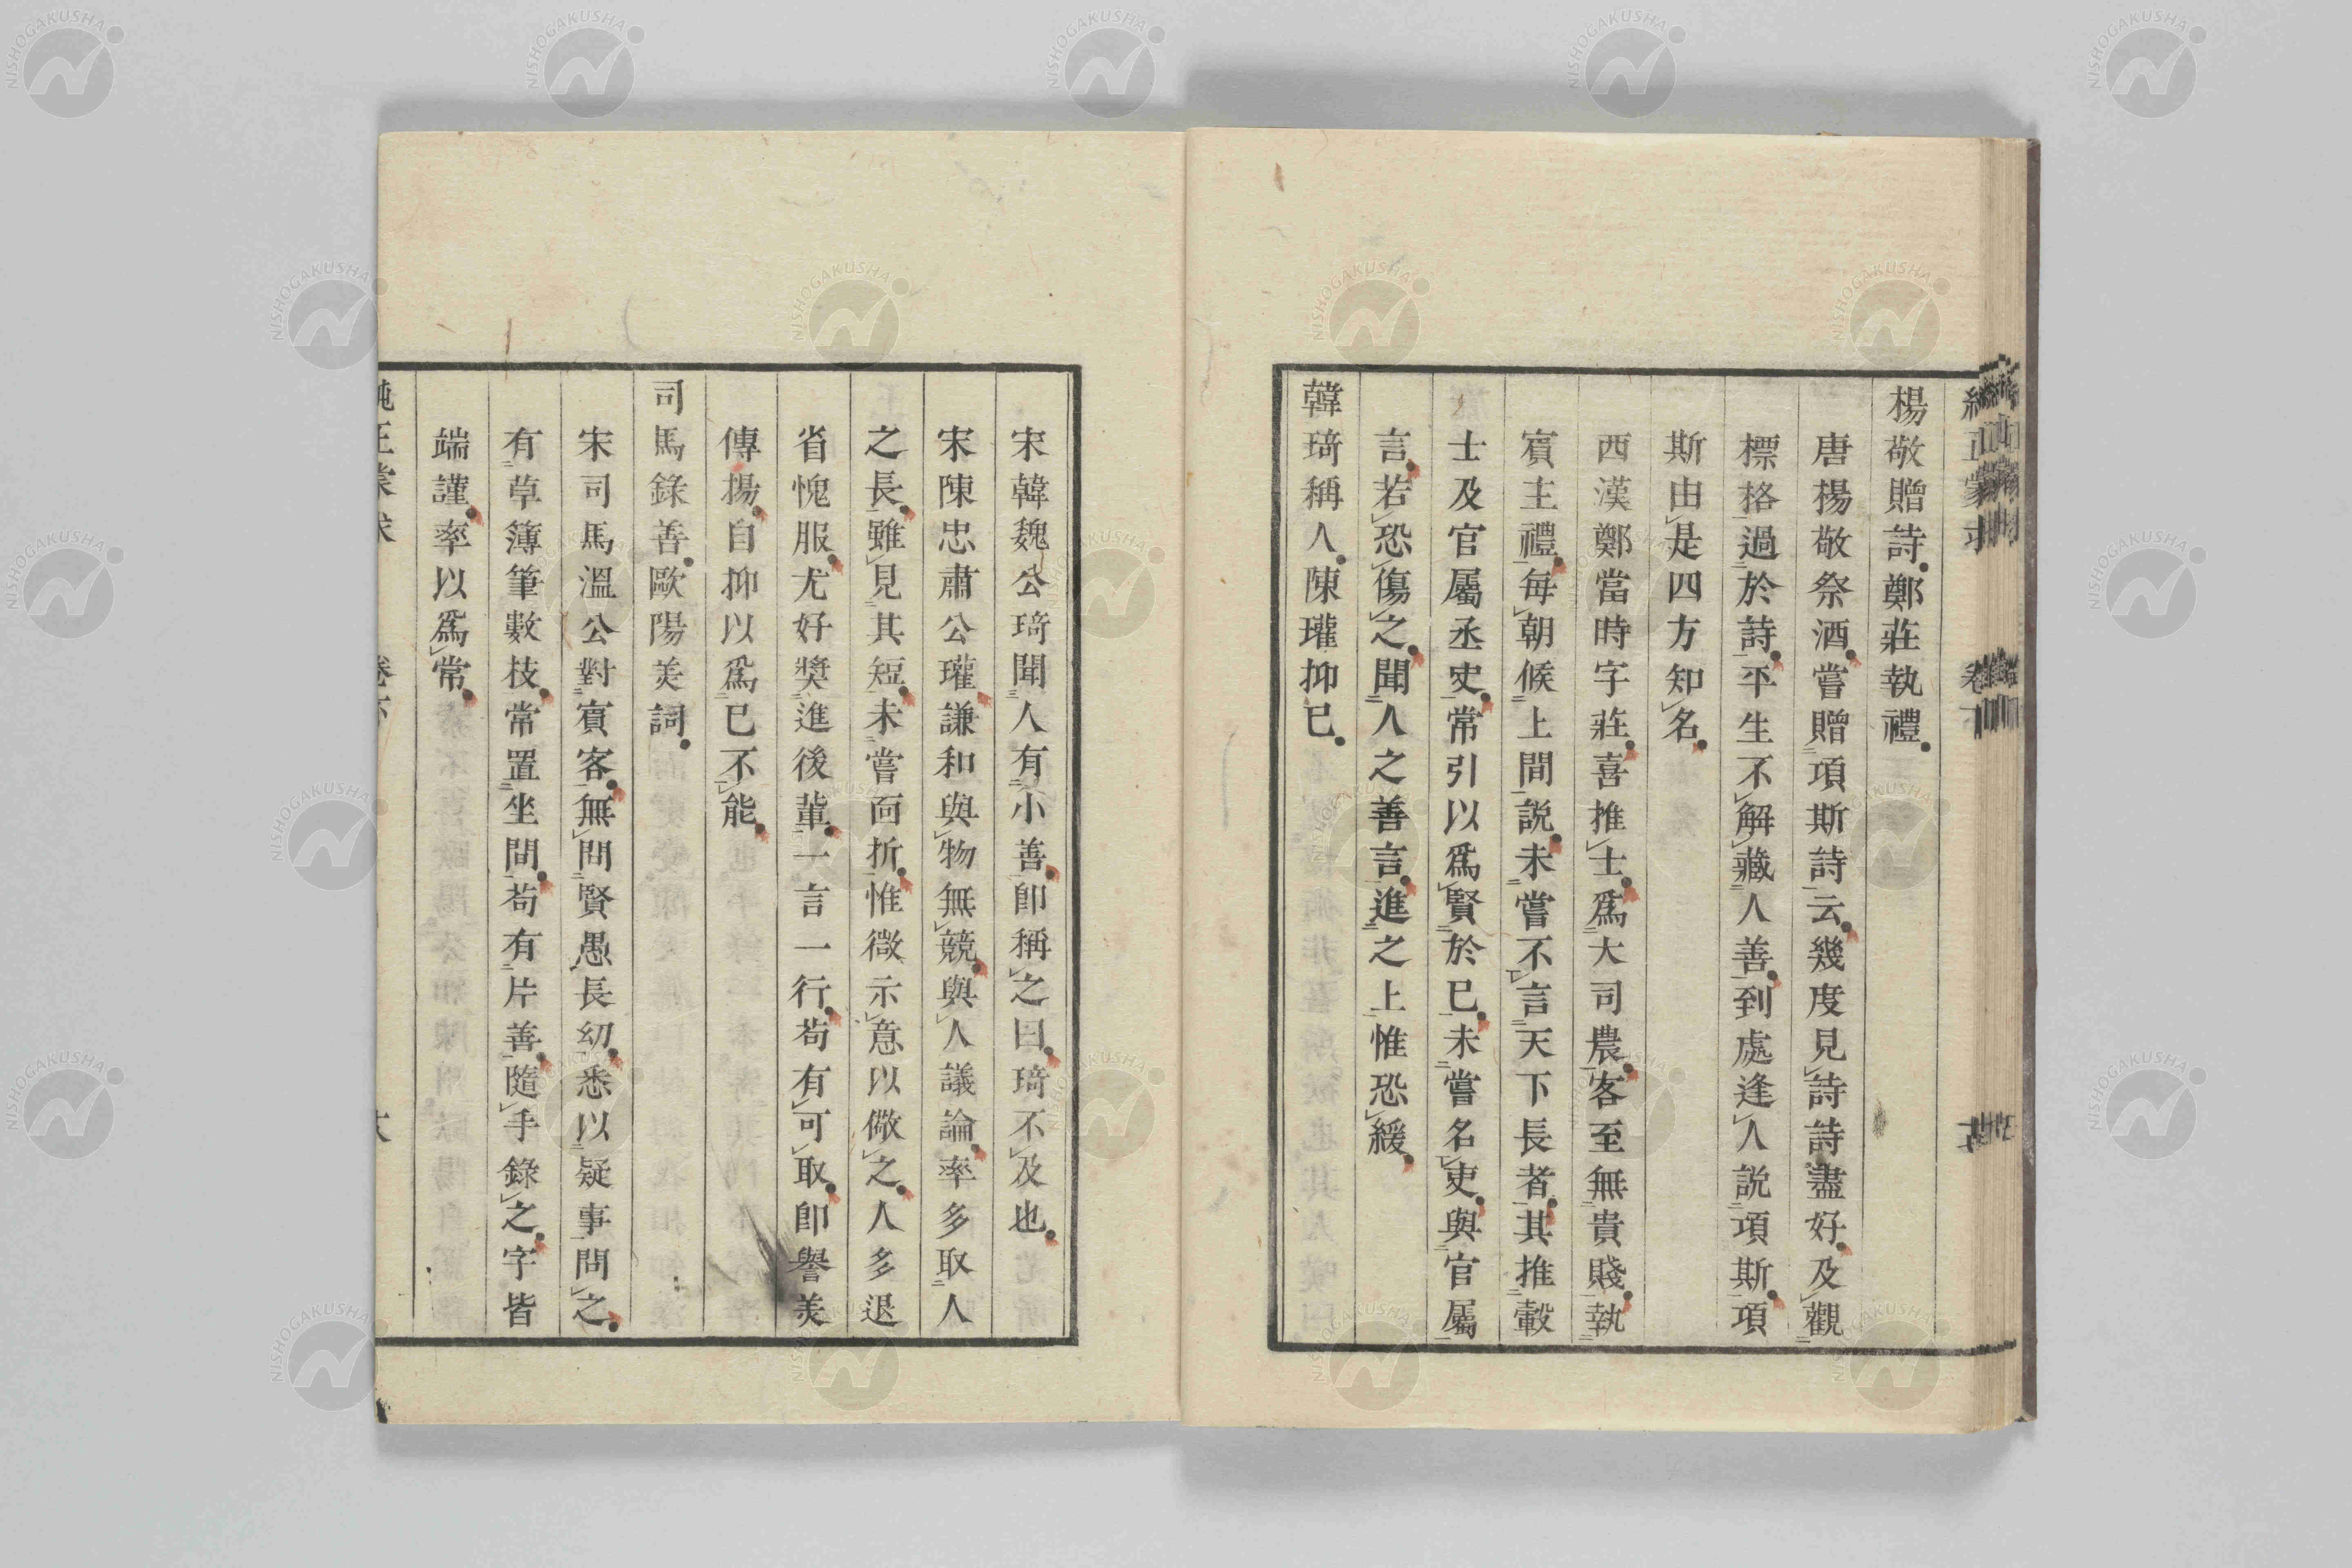 楊敬贈詩鄭莊執禮
唐楊敬祭酒嘗贈項斯詩云幾度見詩詩盡好及觀
標格過於詩平生不解藏人善到處逢人説項斯項
斯由是四方知名
西漢鄭當時字莊喜推士爲大司農客至無貴賤執
賓主禮每朝候上間説未嘗不言天下長者其推轂
士及官屬丞史常引以爲賢於己未嘗名吏與官屬
言若恐傷之聞人之善言進之上惟恐緩
韓琦稱人陳瓘抑已
宋韓魏公琦聞人有小善卽稱之曰琦不及也
宋陳忠肅公瓘謙和與物無競與人議論率多取人
之長雖見其短未嘗面折惟微示意以儆之人多退
省愧服尤好奬進後輩一言一行苟有可取卽譽美
傳揚自抑以爲已不能
司馬錄善歐陽美詞
宋司馬溫公對賓客無問賢愚長幼悉以疑事問之
有草簿筆數枝常置坐間苟有片善隨手錄之字皆
端謹率以爲常
純正蒙求 卷下
NISHOGAKUSHA